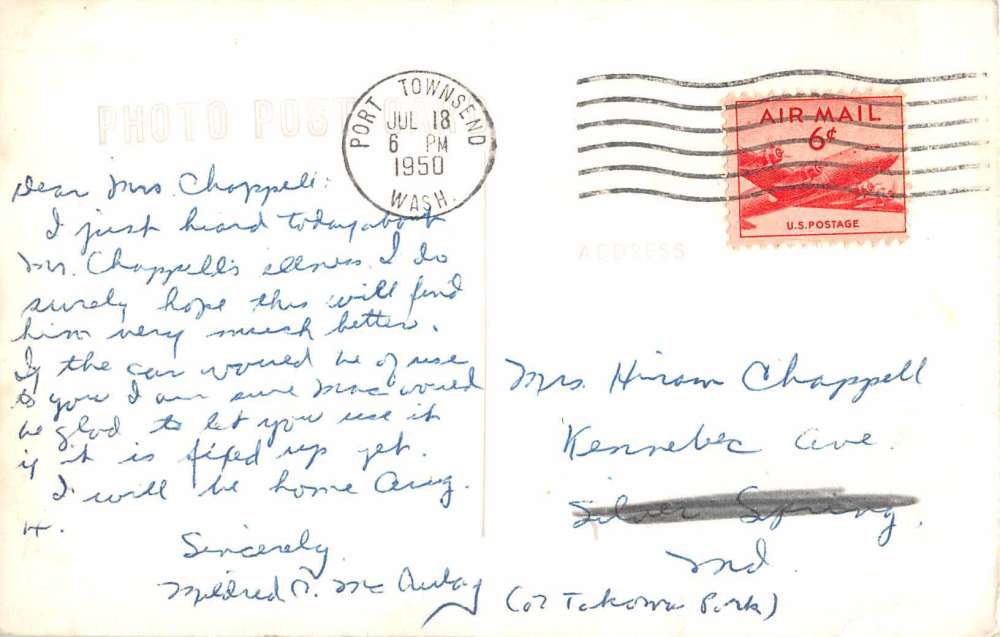 PHOTO POST CARD
PORT TOWNSEND
JUL 18
6 PM
1950
WASH.
AIR MAIL
6¢
U.S. POSTAGE
ADDRESS
Dear Mrs. Chappell:
I just heard today about
Mr. Chappell's illness. I do
surely hope this will find
him very much better.
If the car would be of use
to you I am sure Mac would
be glad to let you use it
if it is fixed up yet.
I will be home Aug.
Sincerely
Mildred McAulay
Mrs. Hiram Chappell
Kennebec Ave.
Silver Spring,
Md.
(or Takoma Park)